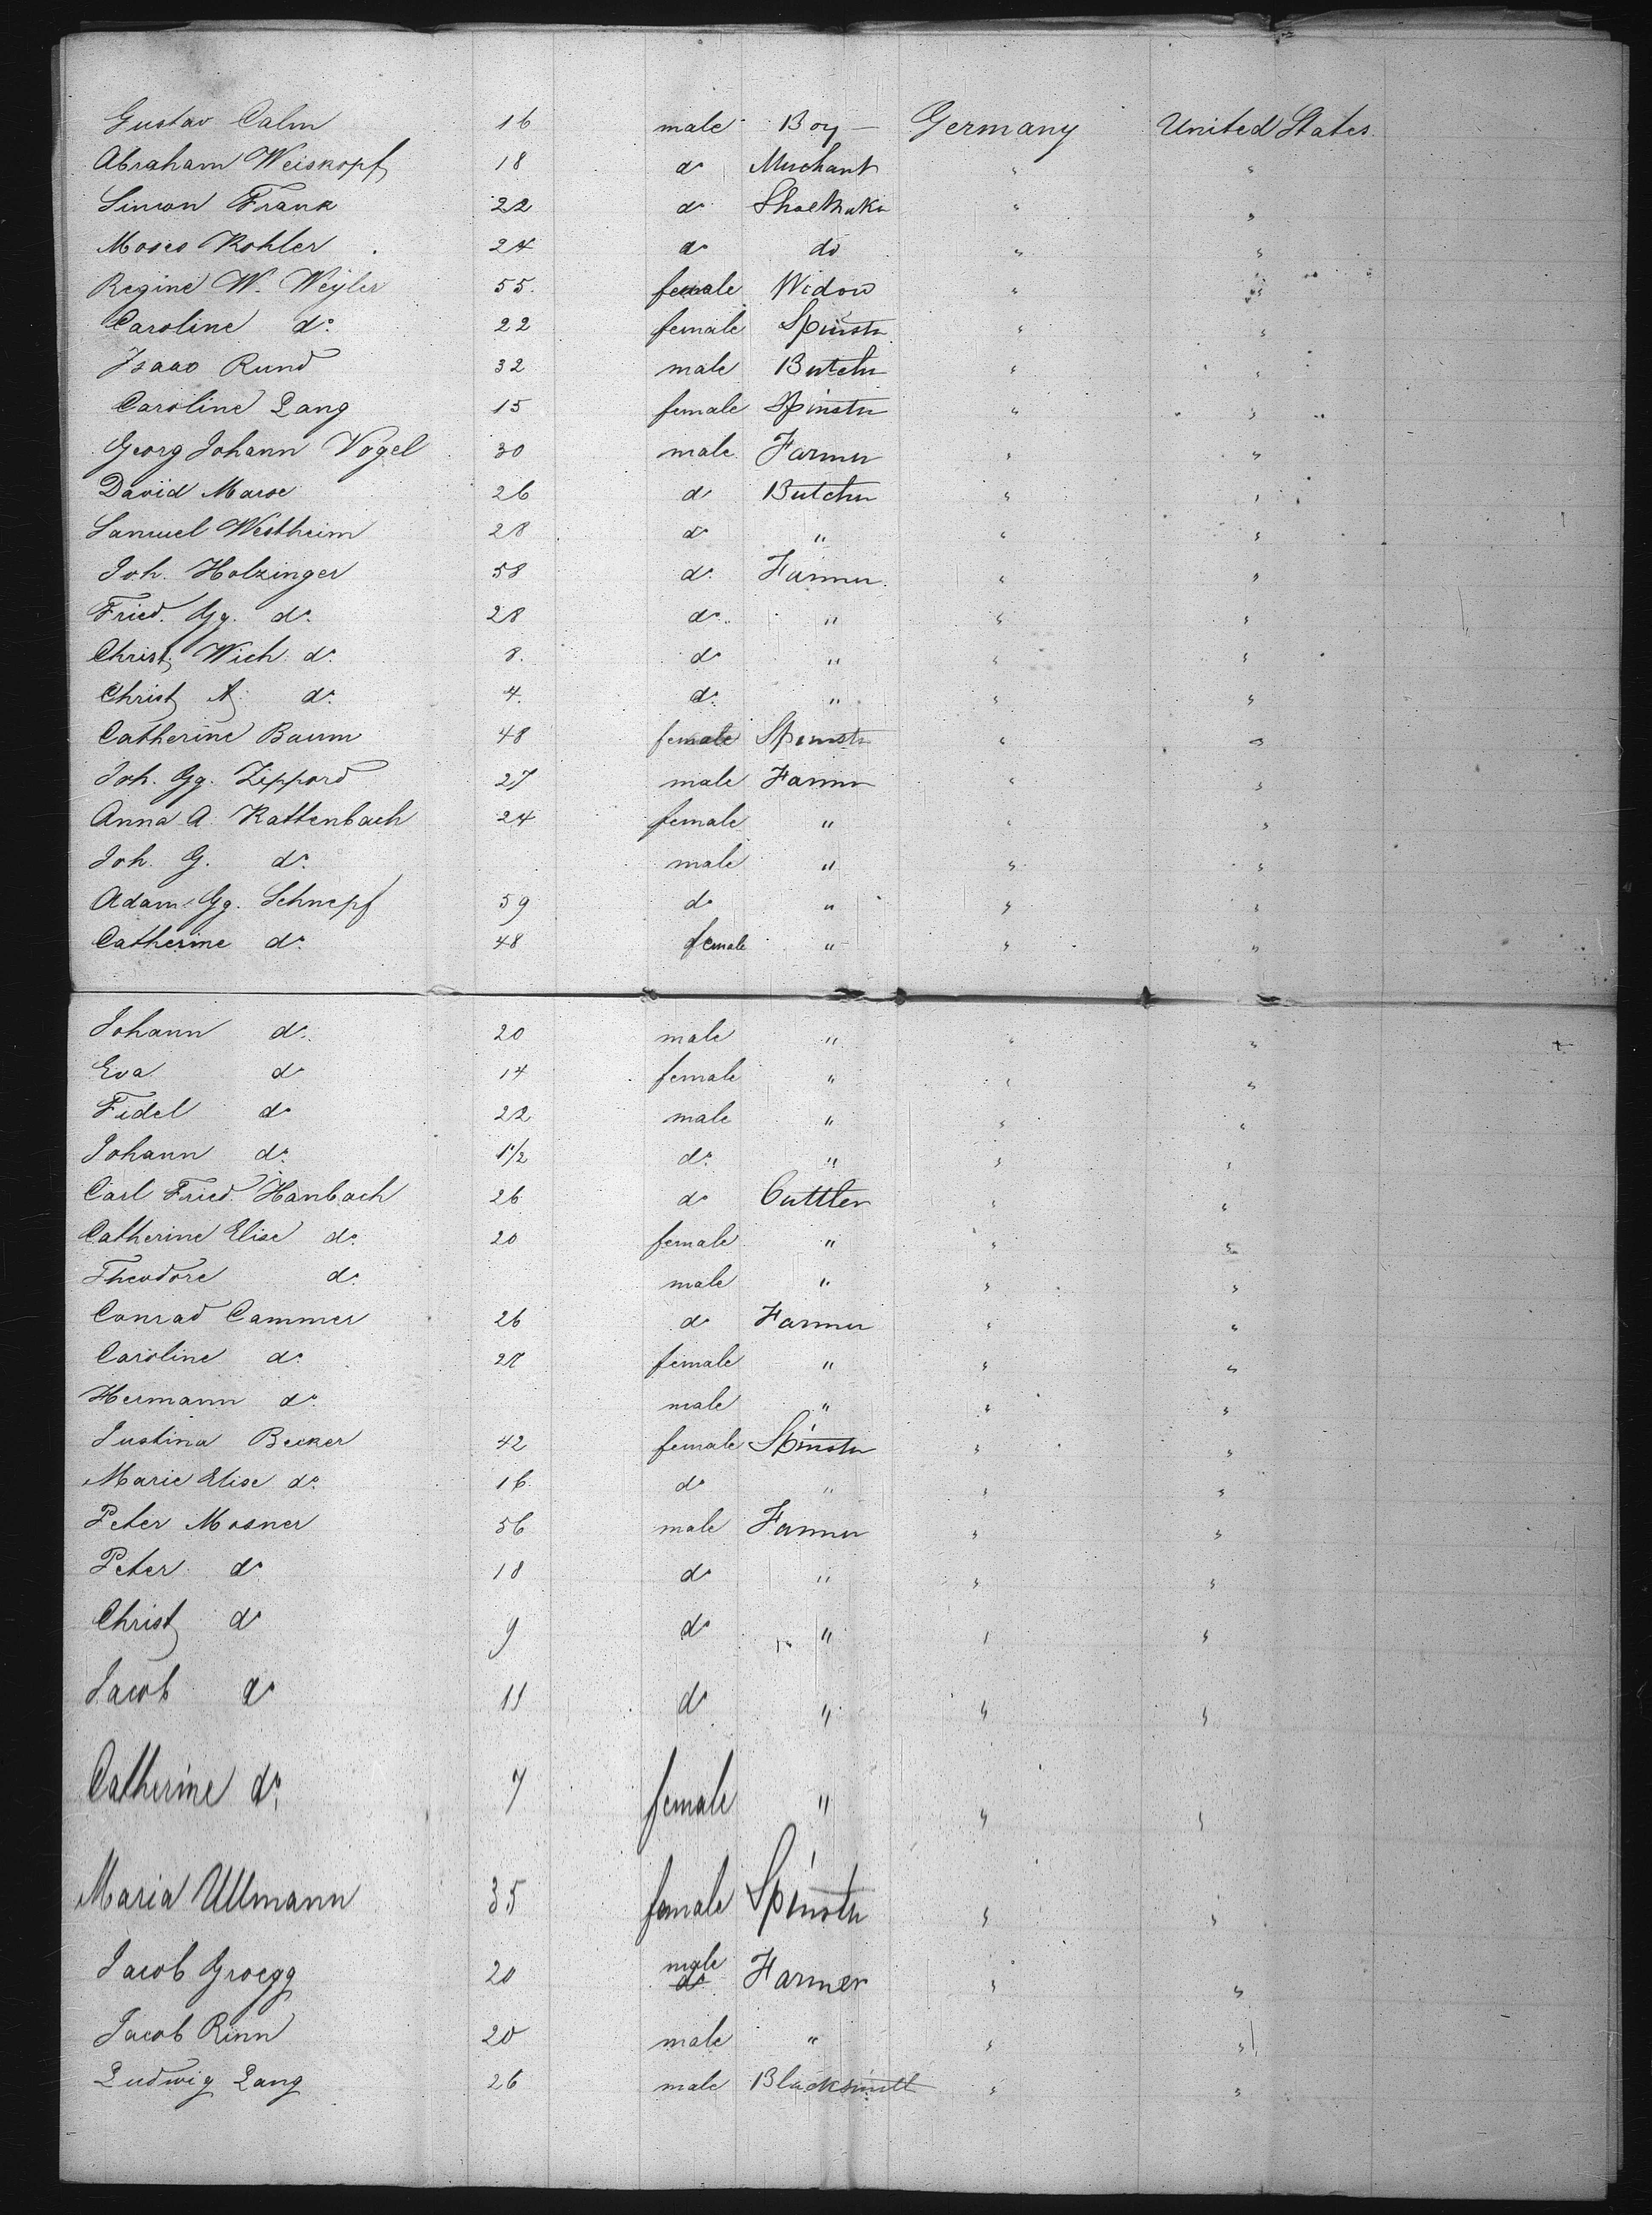 Gustav Calm 16 male Boy — Germany United States
Abraham Weiskopf 18 do Merchant " "
Simon Frank 22 do Shoemaker " "
Moses Kohler 24 do do " "
Regine W. Weyler 55 female Widow " "
Caroline do 22 female Spinster " "
Isaac Rund 32 male Butcher " "
Caroline Lang 15 female Spinster " "
Georg Johann Vogel 30 male Farmer " "
David Marse 26 do Butcher " "
Samuel Westheim 28 do " " "
Joh. Holzinger 58 do Farmer " "
Fried. Gg. do 28 do " " "
Christ. Wich. do 8. do " " "
Christ A. do 4. do " " "
Catherine Baum 48 female Spinster " "
Joh. Gg. Zippord 27 male Farmer " "
Anna A. Kattenbach 24 female " " "
Joh. G. do male " " "
Adam Gg. Schnepf 59 do " " "
Catherine do 48 female " " "
Johann do 20 male " " "
Eva do 14 female " " "
Fidel do 22 male " " "
Johann do 1 1/2 do " " "
Carl Fried. Hanbach 26 do Cuttler " "
Catherine Elise do 20 female " " "
Theodore do male " " "
Conrad Cammer 26 do Farmer " "
Caroline do 27 female " " "
Hermann do male " " "
Justina Becker 42 female Spinster " "
Marie Elise do 16 do " " "
Peter Mosner 56 male Farmer " "
Peter do 18 do " " "
Christ do 9 do " " "
Jacob do 11 do " " "
Catherine do 7 female " " "
Maria Ullmann 35 female Spinster " "
Jacob Groegg 20 male do Farmer " "
Jacob Rinn 20 male " " "
Ludwig Lang 26 male Blacksmith " "